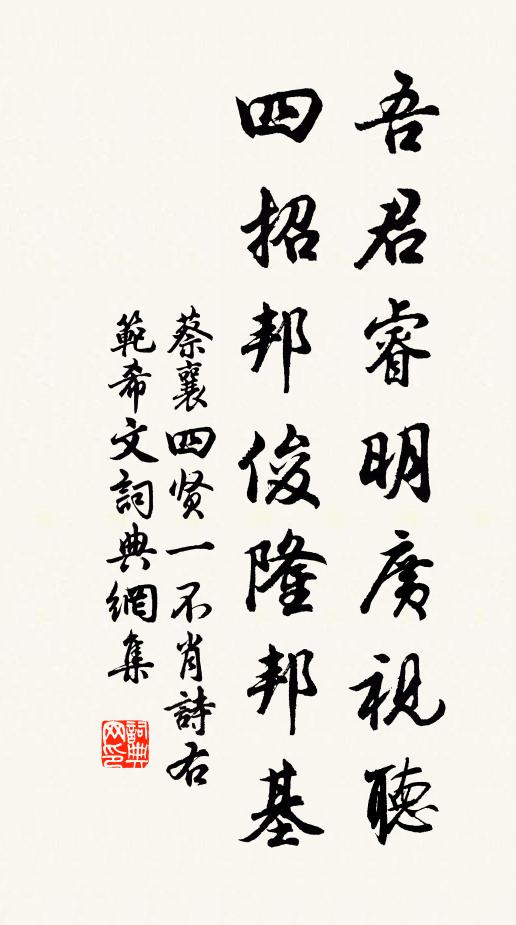 吾君睿明廣視聽
四招邦俊隆邦基
蔡襄四贤一不肖詩右
範希文詞典網集
詞典
网印